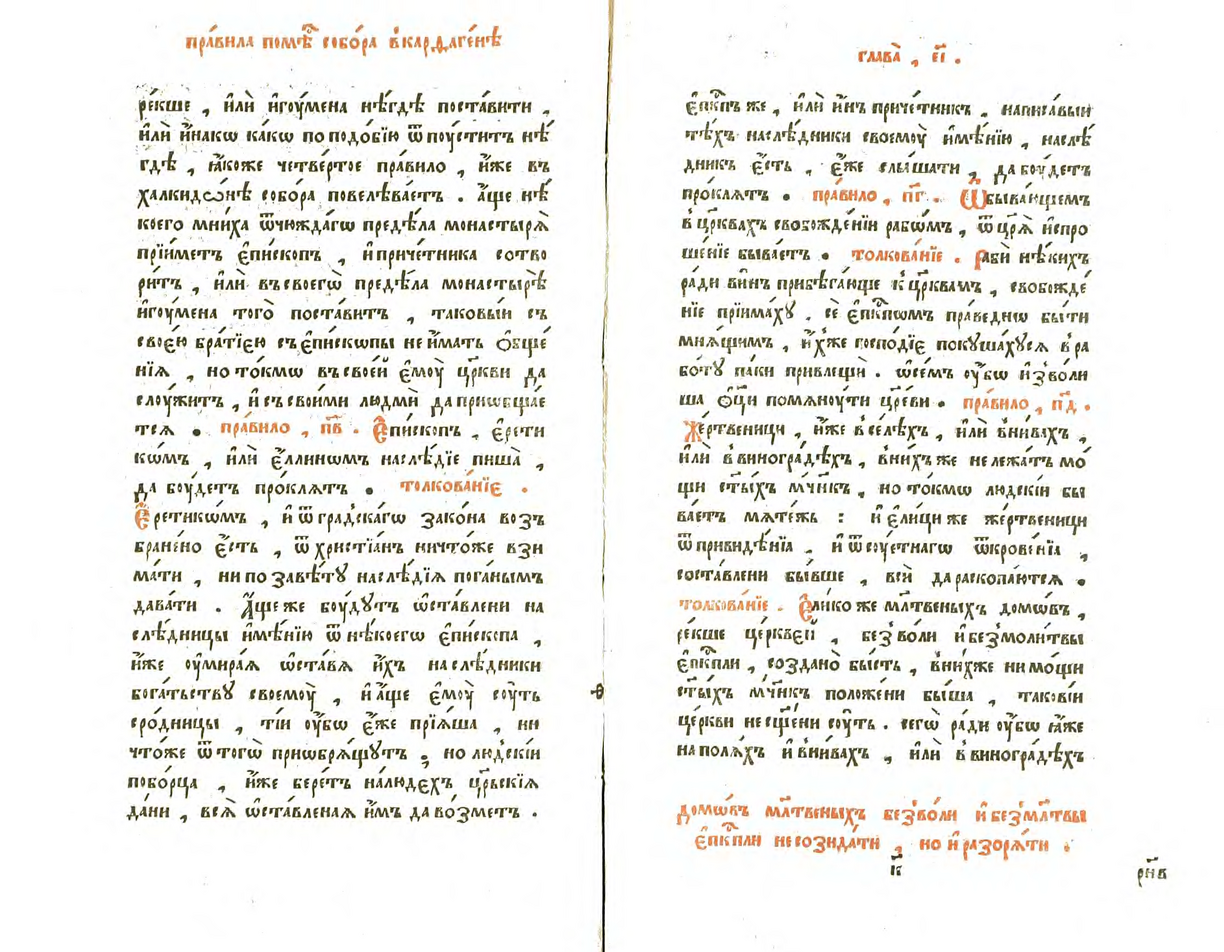 пра́вила помѣ́ⷭ собо́ра в̾кардаге́нѣ
ре́кше , и҆лѝ и҆гоу́мена нѣ́гдѣ поста́вити ,
и҆лѝ и҆́накѡ ка́кѡ по подо́бїю ѿпоу́ститъ нѣ́
гдѣ , ꙗ҆́коже четве́ртое пра́вило , и҆́же въ
халкидѡ́нѣ собо́ра повелѣва́етъ . а҆́ще нѣ́
коего мни́ха ѿчю́ждаго предѣ́ла монастырѧ̀
прїи́метъ є҆пи́скопъ , и҆причетника сотво
ри́тъ , и҆лѝ въсвоегѡ̀ предѣ́ла монастырѣ̀
и҆гоу́мена того̀ поста́витъ , таковы́и съ
свое́ю бра́тїею съе҆пи́скѡпы не и҆́мать ѻ҆бще
нїѧ , но то́кмѡ въ свое́й є҆моу̀ цр҃кви да
слоу́житъ , и҆ съ свои́ми людмѝ да приѡбщае
тсѧ . пра́вило , п҃в . Є҆пи́скопъ , є҆рети
кѡ́мъ , и҆лѝ е҆́ллиномъ наслѣ́дїе пиша̀ ,
да боу́детъ про́клѧтъ . толкова́нїе .
Є҆ретикѡ́мъ , и҆ ѿ гра́дскагѡ зако́на возъ
бране́но є҆́сть , ѿ христїа́нъ ничто́же взи
ма́ти , ни по завѣ́тꙋ наслѣ́дїѧ пога́нымъ
дава́ти . А҆́ще же боу́дꙋтъ ѡ҆ста́влени на
слѣ́дницы и҆мѣ́нїю ѿ нѣ́коегѡ є҆пи́скопа ,
и҆́же оу҆мира́ѧ ѡ҆ста́вѧ и҆́хъ наслѣ́дники
бога́тьствꙋ своемоу̀ , и҆ а҆́ще є҆моу̀ соу́ть
сро́дницы , ті́и оу҆́бѡ є҆́же прїѧ́ша , ни
что́же ѿ того̀ приѡбрѧ́щꙋтъ , но людскі́и
побо́рца , и҆́же бере́тъ на́людехъ цр҃ьскїѧ
да́ни , всѧ̀ ѡ҆ста́вленаѧ и҆́мъ да во́зметъ .
глава̀ , є҃і .
є҆пкⷭ҇пъ же , и҆лѝ и҆́нъ приче́тникъ , написа́выи
тѣ́хъ наслѣ́дники своемоу̀ и҆мѣ́нїю , наслѣ́
дникъ є҆́сть , є҆́же слы́шати , да боу́детъ
про́клѧтъ . пра́вило , п҃г . Ѡ҆ быва́ющемъ
в̾ цр҃квахъ свобожде́нїи рабѡ́мъ , ѿ цр҃ѧ̀ и҆спро
ше́нїе быва́етъ . толкова́нїе . Рабѝ нѣ́кихъ
ради ви́нъ прибѣга́юще к̾ цр҃квамъ , свобожде́
нїе прїима́хꙋ . сѐ є҆пкⷭ҇пѡмъ пра́веднѡ бы́ти
мнѧ́щимъ , и҆́хже госпо́дїе покꙋша́хꙋсѧ в̾ ра
бо́тꙋ па́ки привлещѝ . ѡ҆ се́мъ оу҆́бѡ и҆зво́ли
ша ѻ҆ц҃и помѧноу́ти цр҃еви . пра́вило , п҃д .
Же́ртвеници , и҆́же в̾ се́лѣхъ , и҆лѝ в̾ни́вахъ ,
и҆лѝ в̾ виногра́дѣхъ , в̾ни́хъ же не лежа́тъ мо́
щи ст҃ы́хъ мч҃нкъ , но то́кмѡ людскі́и бы
ва́етъ мѧте́жь : и҆ є҆ли́ци же же́ртвеници
ѿ привидѣ́нїа , и҆ ѿ соу́етнагѡ ѿкрове́нїа ,
соста́влени бы́вше , всѝ да раскопа́ютсѧ .
толкова́нїе . Є҆ли́ко же мл҃твеныхъ домѡ́въ ,
ре́кше це́рквей , без̾ во́ли и҆ без̾ моли́твы
є҆пкⷭ҇пли , со́здано̀ бы́сть , в̾ни́хже ни мо́щи
ст҃ы́хъ мч҃нкъ поло́жени бы́ша , такові́и
це́ркви несщ҃е́ни соу́ть . сегѡ̀ ра́ди оу҆́бѡ ꙗ҆́же
на полѧ́хъ и҆ в̾ни́вахъ , и҆лѝ в̾ виногра́дѣхъ
домѡ́въ мл҃твеныхъ без̾во́ли и҆ без̾мл҃твы
є҆пкⷭ҇пли не созида́ти , но и҆ разорѧ́ти .
к҃
рн҃в